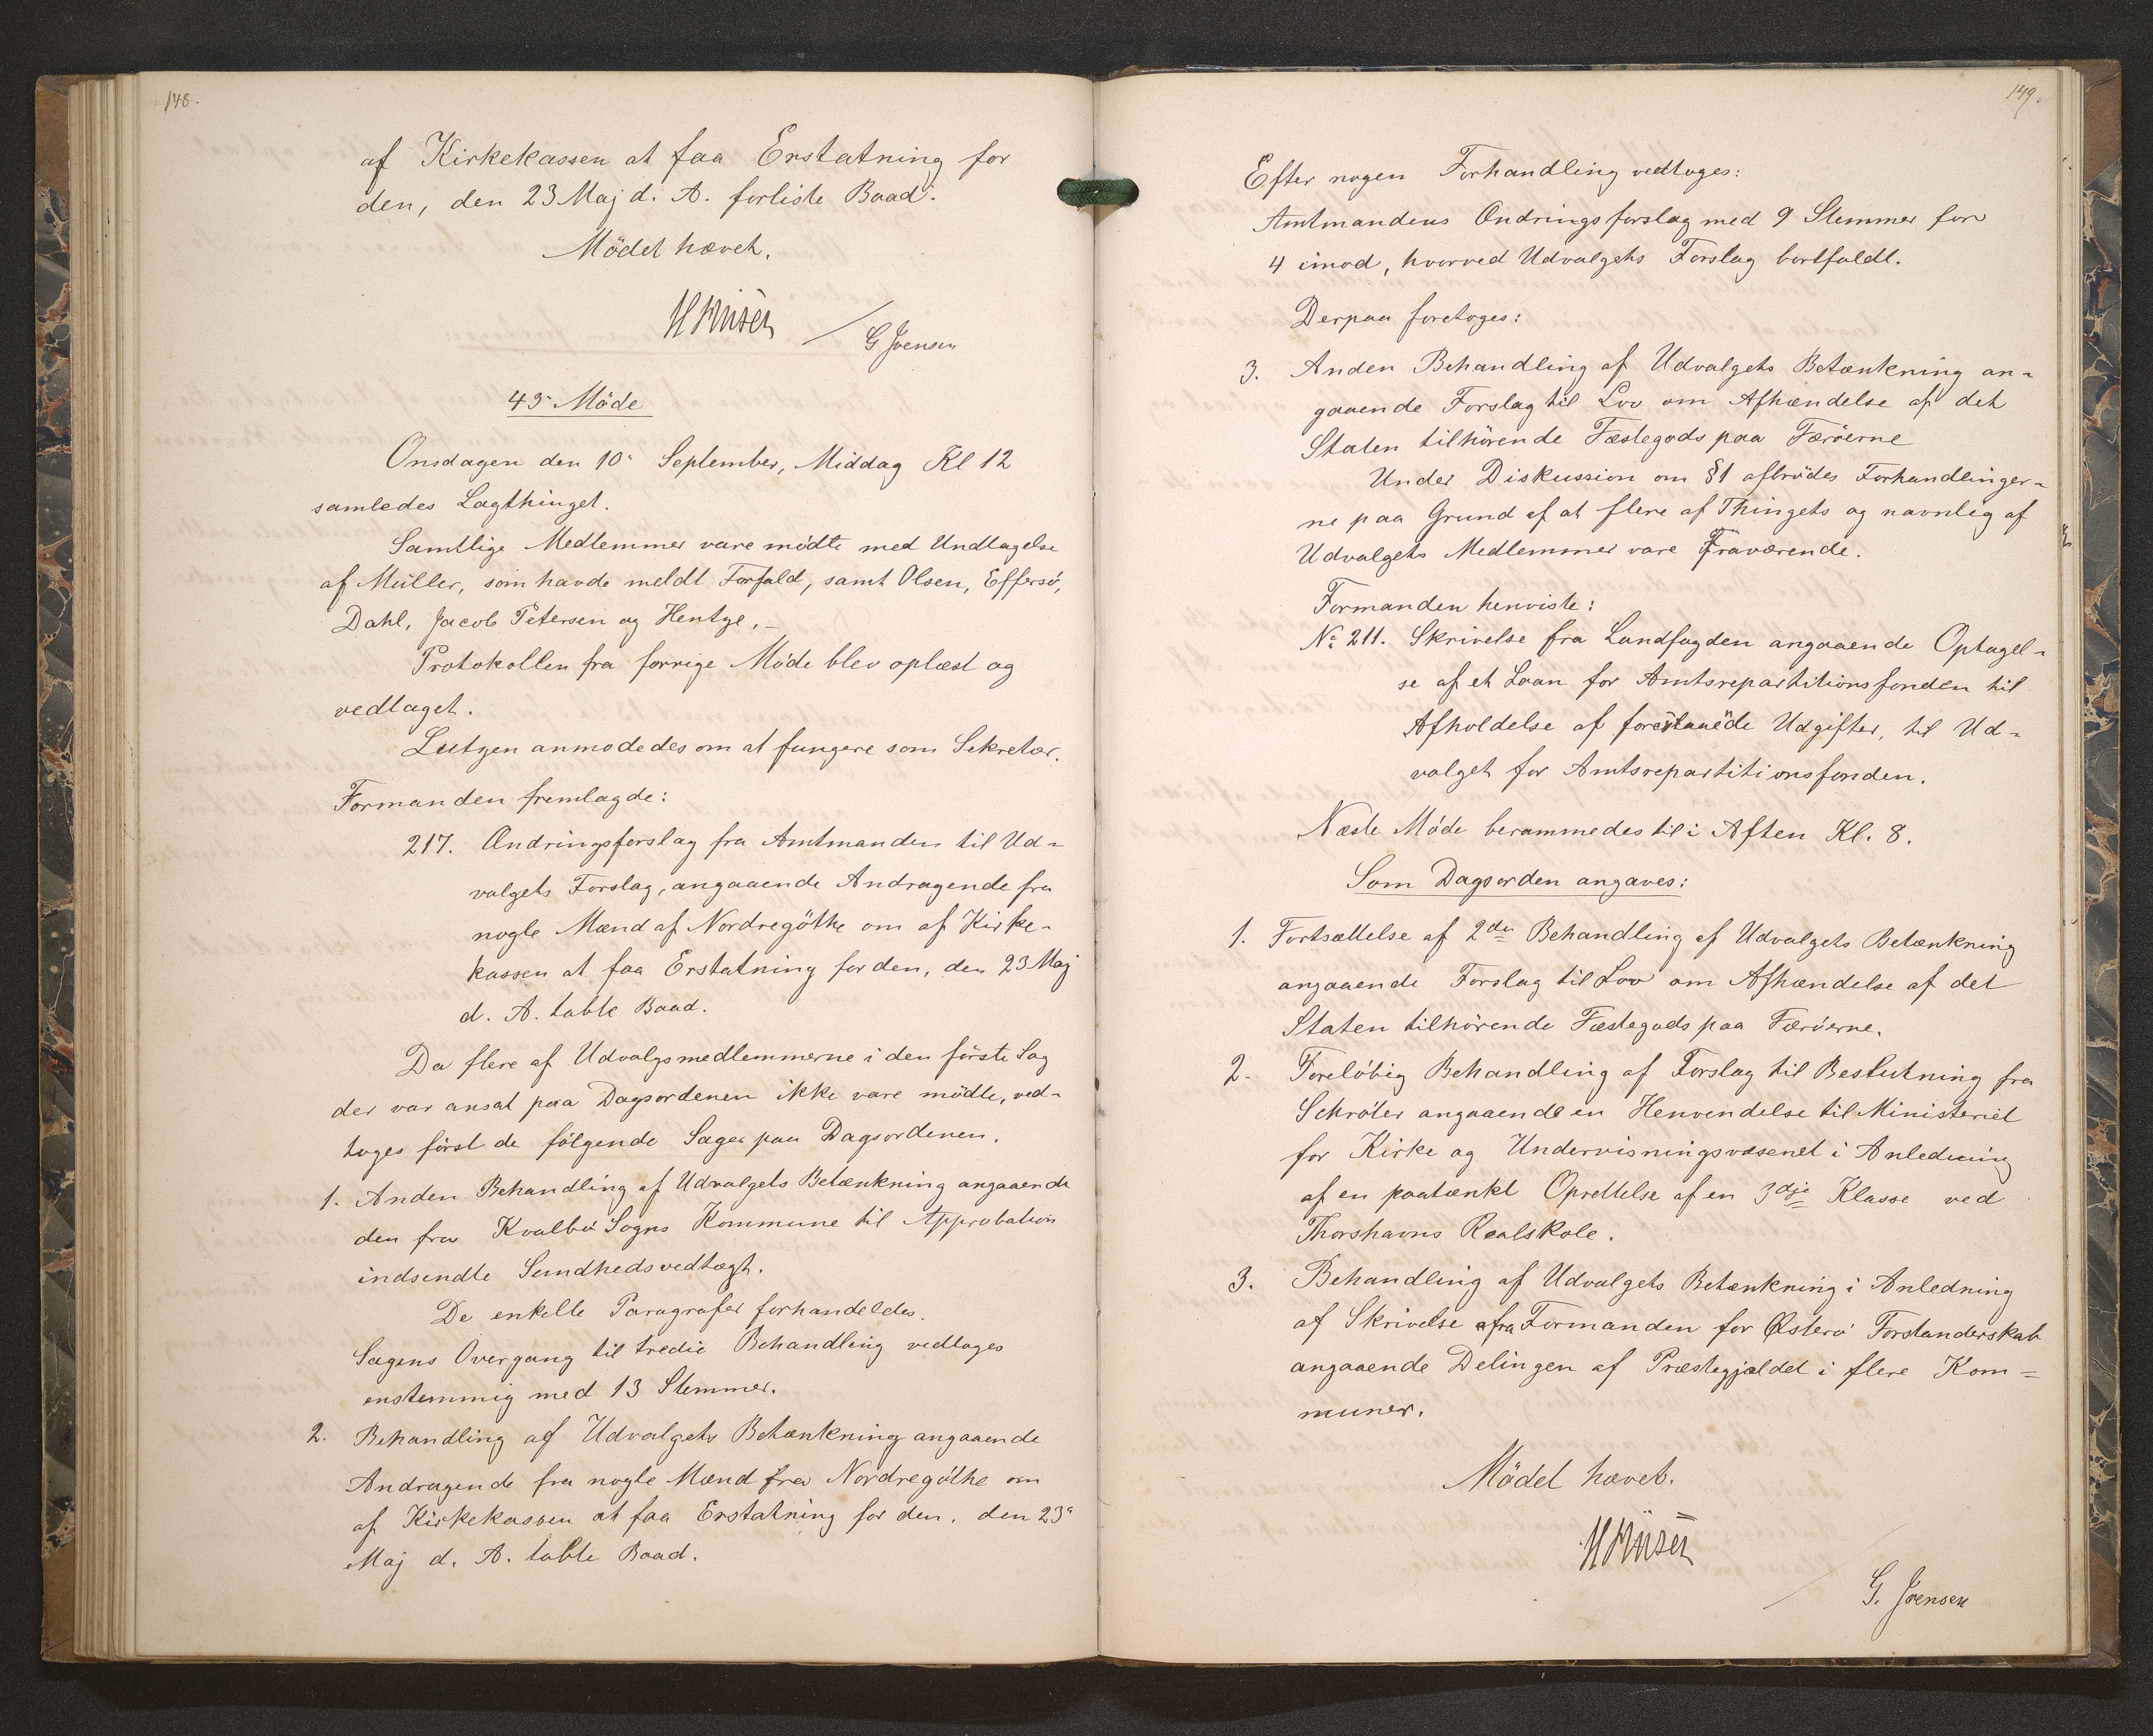 148.
af Kirkekassen at faa Erstatning for
den, den 23 Maj d. A. forliste Baad.
Mödet hævet.
G Joensen
43 Möde
Onsdagen den 10' September, Middag Kl 12
samledes Lagthinget.
Samtlige Medlemmer vare mödte med Undtagelse
af Müller, som havde meldt Forfald, samt Olsen, Effersö,
Dahl, Jacob Petersen og Hentze.–
Protokollen fra forrige Möde blev oplæst og
vedtaget.
Lützen anmodedes om at fungere som Sekretær.
Formanden fremlagde:
217. Ændringsforslag fra Amtmanden til Ud=
valgets Forslag, angaaende Andragende fra
nogle Mænd af Nordregöthe om af Kirke-
kassen at faa Erstatning for den, den 23 Maj
d. A. tabte Baad.
Da flere af Udvalgsmedlemmerne i den förste Sag
der var ansat paa Dagsordenen ikke vare mödte, ved-
toges först de fölgende Sager paa Dagsordenen.
1. Anden Behandling af Udvalgets Betænkning angaaende
den fra Kvalbö Sogns Kommune til Approbation
indsendte Sundhedsvedtægt.
De enkelte Paragrafer forhandledes.
Sagens Overgang til tredie Behandling vedtoges
enstemmig med 13 Stemmer.
2. Behandling af Udvalgets Betænkning angaaende
Andragende fra nogle Mænd fra Nordregöthe om
af Kirkekassen at faa Erstatning for den, den 23'
Maj d. A. tabte Baad.
149.
Efter nogen Forhandling vedtoges:
Amtmandens Ændringsforslag med 9 Stemmer for
4 imod, hvorved Udvalgets Forslag bortfaldt.
Derpaa foretoges:
3. Anden Behandling af Udvalgets Betænkning an=
gaaende Forslag til Lov om Afhændelse af det
Staten tilhörende Fæstegods paa Færöerne
Under Diskussion om §1 afbrödes Forhandlinger=
ne paa Grund af at flere af Thingets og navnlig af
Udvalgets Medlemmer vare Fraværende.
Formanden henviste:
No 211. Skrivelse fra Landfogden angaaende Optagel=
se af et Laan for Amtsrepartitionsfonden til
Afholdelse af forestaaende Udgifter, til Ud=
valget for Amtsrepartitionsfonden.
Næste Möde berammedes til i Aften Kl. 8.
Som Dagsorden angaves:
1. Fortsættelse af 2den Behandling af Udvalgets Betænkning
angaaende Forslag til Lov om Afhændelse af det
Staten tilhörende Fæstegods paa Færöerne.
2. Foreløbig Behandling af Forslag til Beslutning fra
Schröter angaaende en Henvendelse til Ministeriet
for Kirke og Undervisningsvæsenet i Anledning
af en paatænkt Oprettelse af en 3dje Klasse ved
Thorshavns Realskole.
3. Behandling af Udvalgets Betænkning i Anledning
af Skrivelse fra Formanden for Østerö Forstanderskab
angaaende Delingen af Præstegjældet i flere Kom=
muner.
Mödet hævet.
G. Joensen